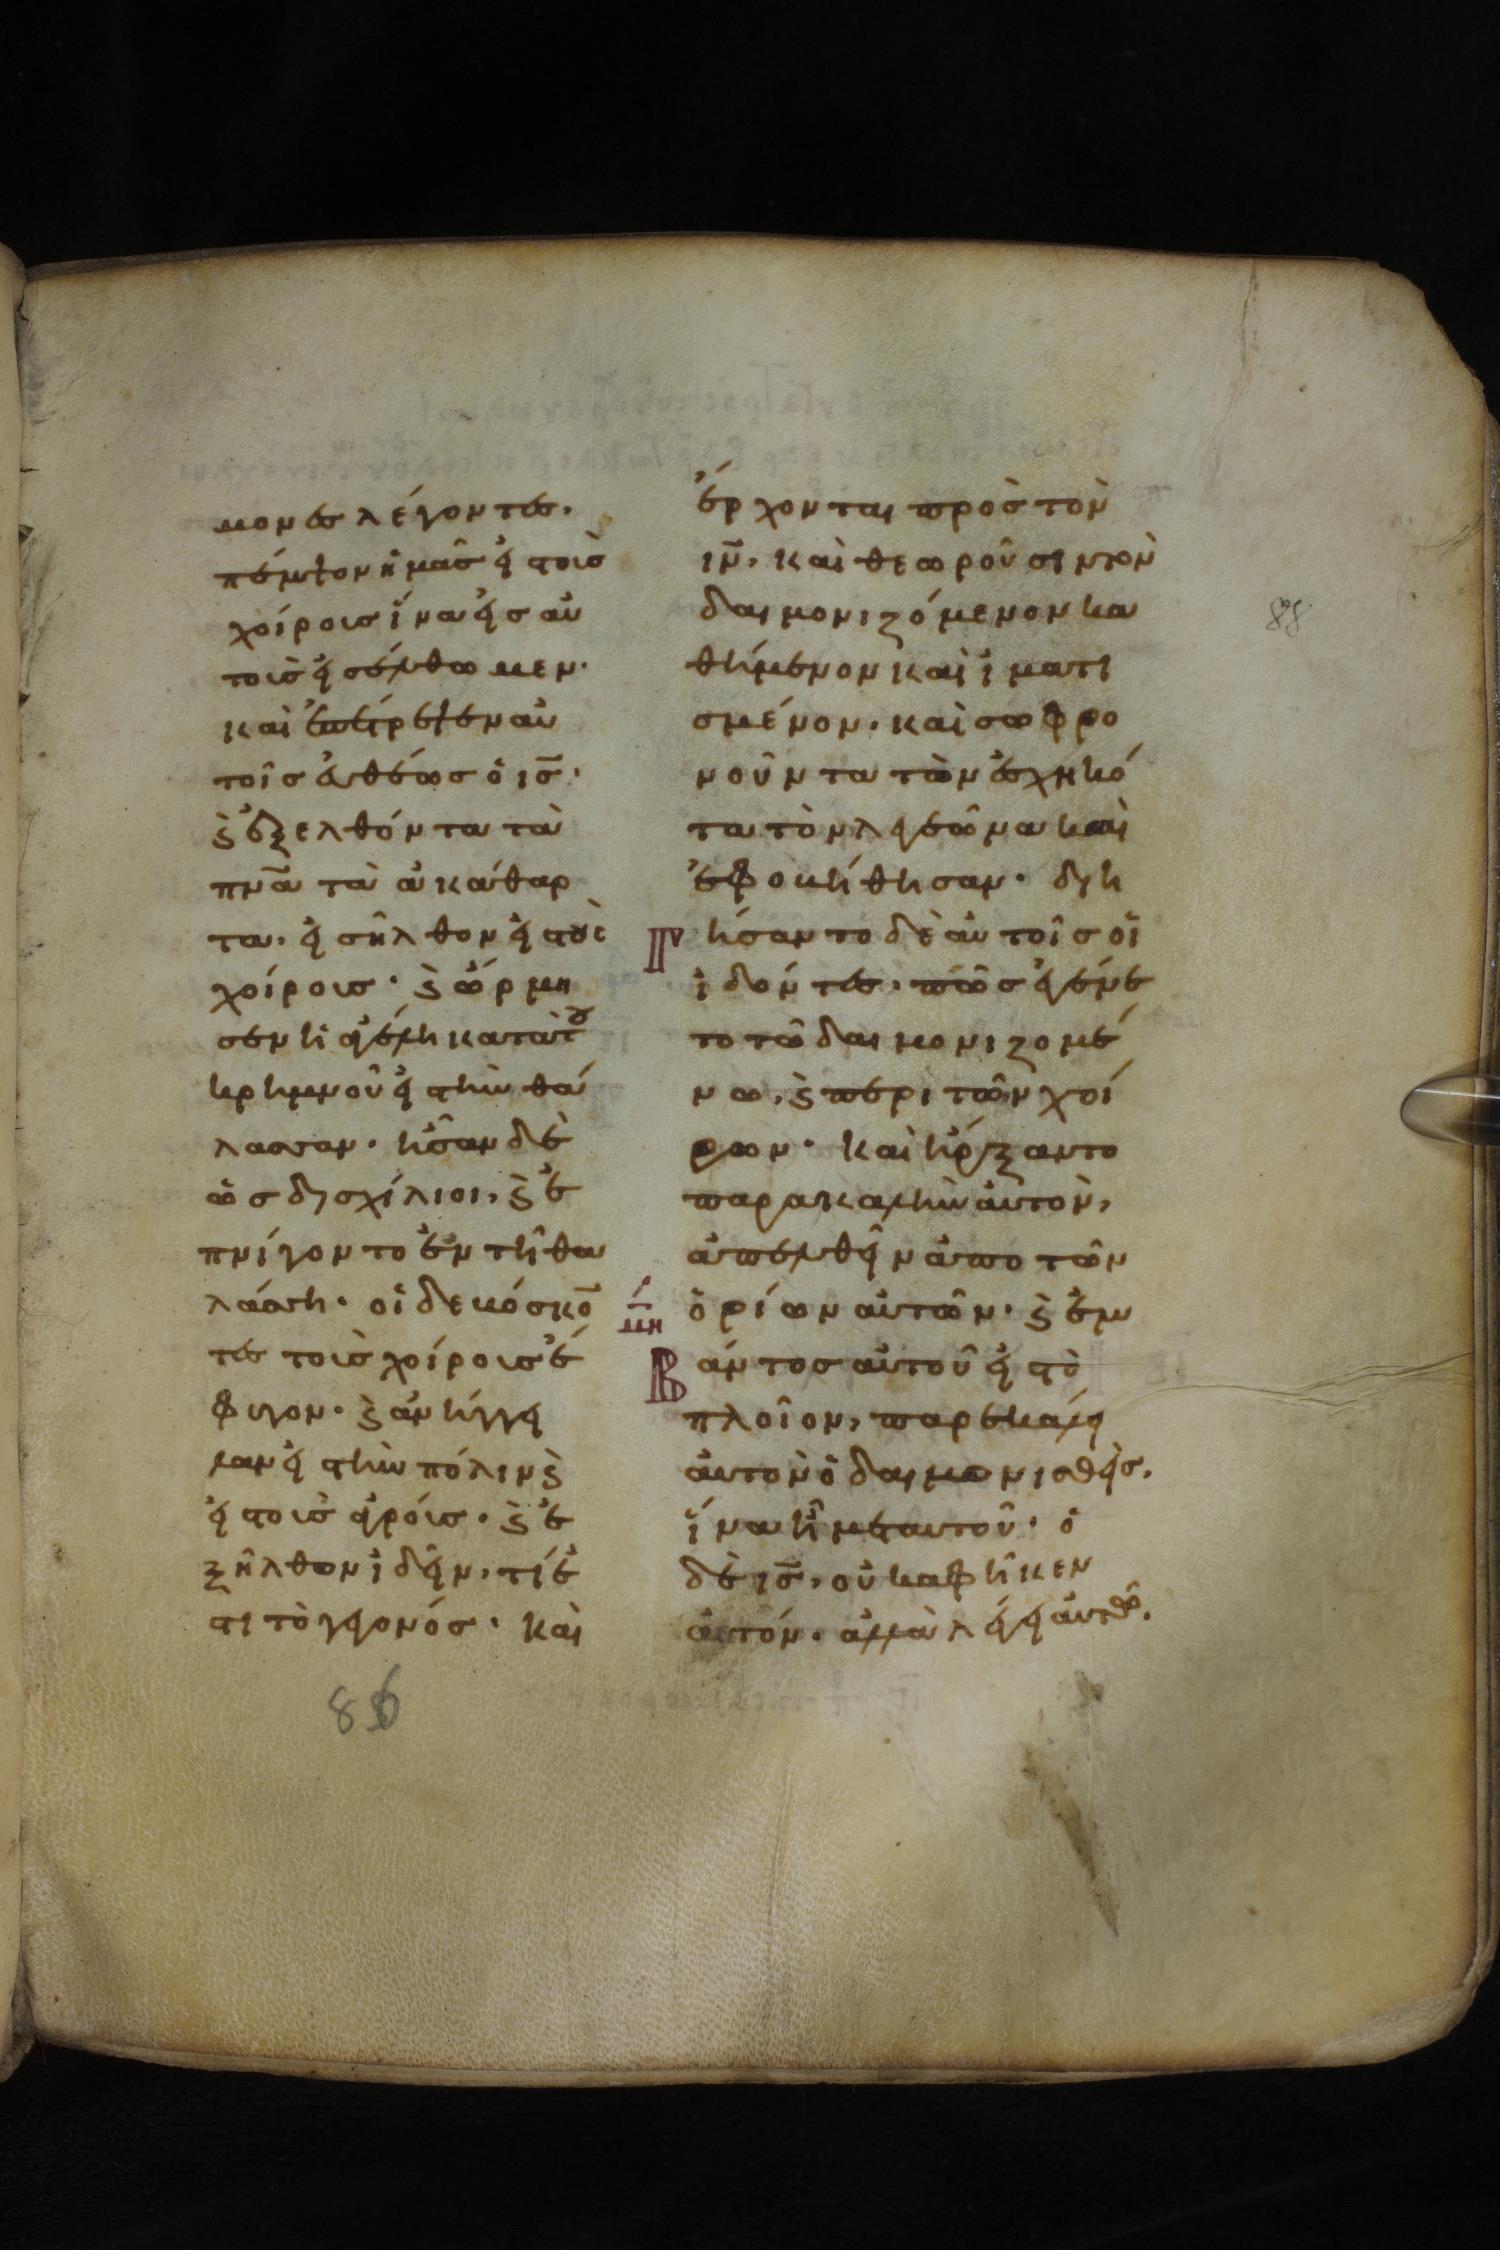 μονες λέγοντες.
πέμψον ἡμᾶς εἰς τοὺς
χοίρους ἵνα εἰς αὐ
τοὺς εἰσέλθωμεν.
καὶ ἐπέτρεψεν αὐ
τοῖς εὐθέως ὁ ις̅.
κ̀ ἐξελθόντα τὰ
πνα̅ τὰ ἀκάθαρ
τα, εἰσῆλθον εἰς τοὺς
χοίρους. κ̀ ὥρμη
σεν ἡ ἀγέλη κατὰ τοῦ
κρημνοῦ εἰς τὴν θά
λασσαν. ἦσαν δὲ
ὡς δισχίλιοι, κ̀ ἐ
πνίγοντο ἐν τῇ θα
λάσση. οἱ δε βόσκο̅
τες τοὺς χοίρους ἔ
φυγον. κ̀ ἀνήγγει
λαν εἰς τὴν πόλιν κ̀
εἰς τοὺς ἀγρούς. κ̀ ἐ
ξῆλθον ἰδεῖν, τί ἐ
στι τὸ γεγονός. καὶ
ἔρχονται πρὸς τὸν
ιν̅. καὶ θεωροῦσιν τὸν
δαιμονιζόμενον κα
θήμενον καὶ ἱματι
σμένον. καὶ σωφρο
νοῦντα τὸν ἐσχηκό
τα τὸν λεγεῶνα καὶ
ἐφοβήθησαν. διη
Γήσαντο δὲ αὐτοῖς οἱ
ἰδόντες. πῶς ἐγένε
το τῶ δαιμονιζομέ
νω, κ̀ περὶ τῶν χοί
ρων. καὶ ἤρξαντο
παρακαλεῖν αὐτὸν,
ἀπελθεῖν ἀπο τῶν
μη ὁρίων αὐτῶν. κ̀ ἐμ
Βάντος αὐτοῦ εἰς τὸ
πλοῖον, παρεκάλει
αὐτὸν ὁ δαιμονισθεὶς,
ἵνα ἦ μετ αυτοῦ. ὁ
δὲ ις̅, οὐκ αφῆκεν
αὐτόν. ἀλλὰ λέγει αὐτῶ.
88
86